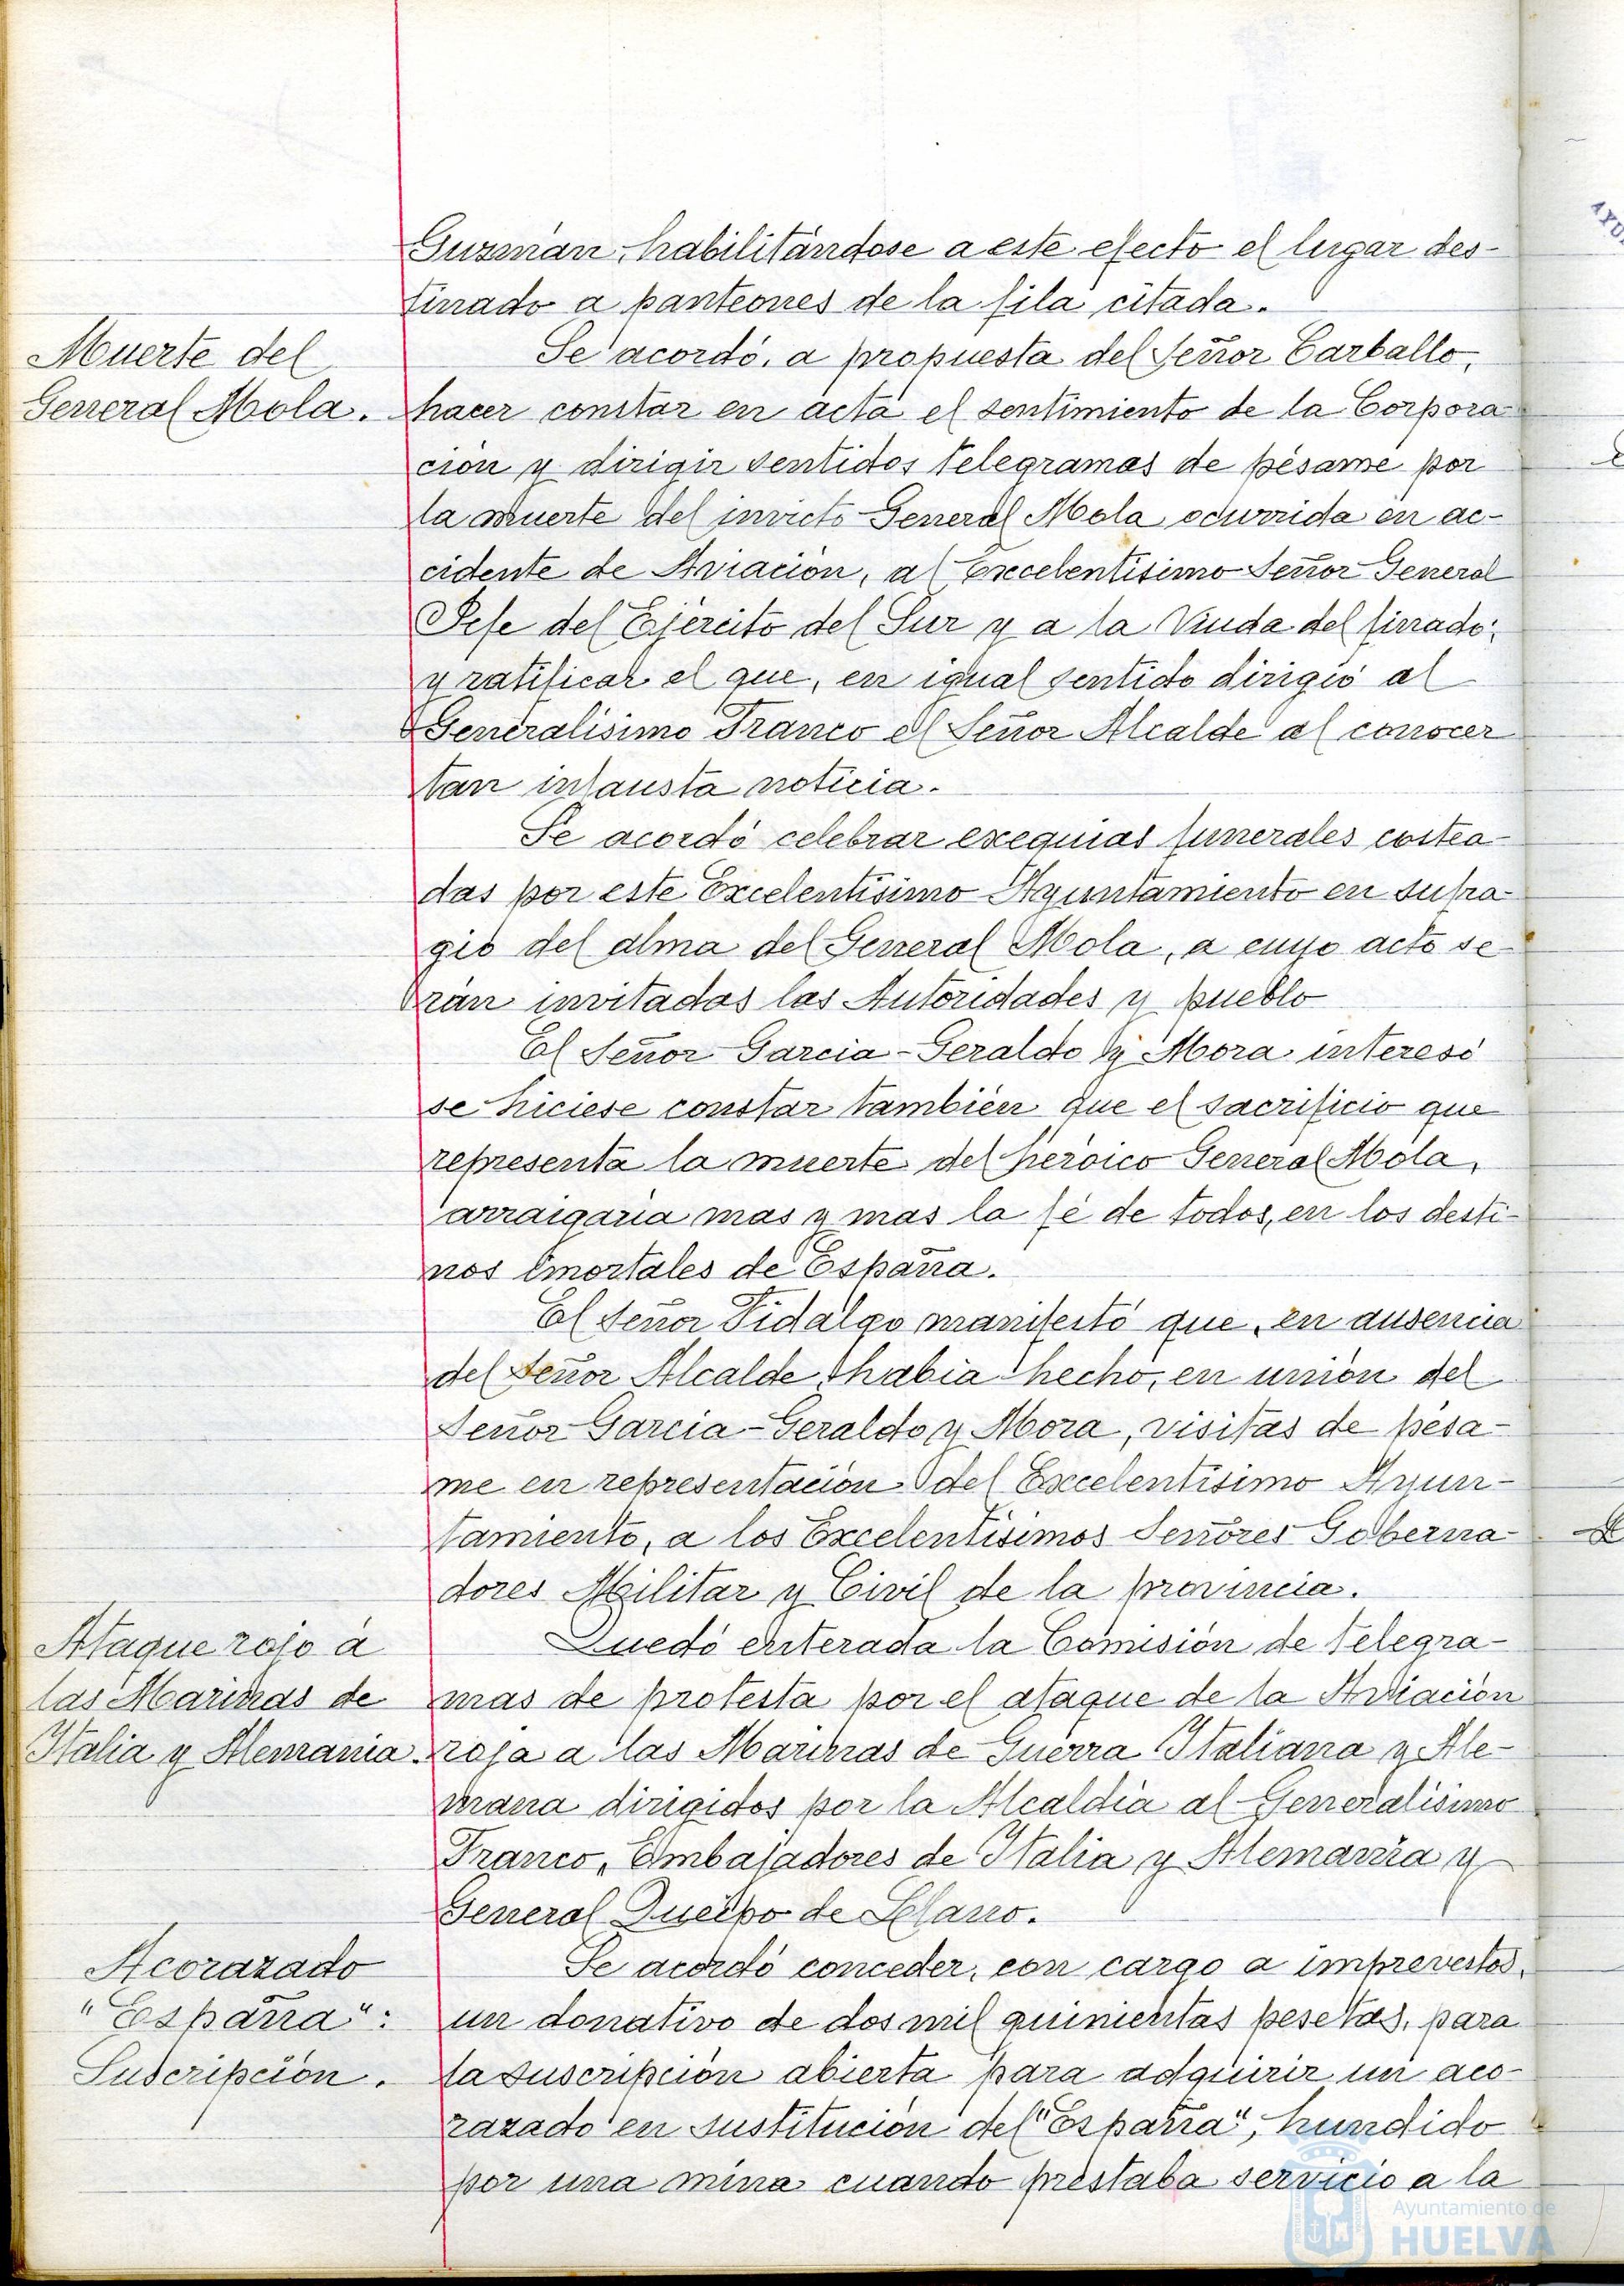 Guzmán, habilitándose a este efecto el lugar des-
tinado a panteones de la fila citada.
Muerte del
General Mola.
Se acordó, a propuesta del Señor Carballo,
hacer constar en acta el sentimiento de la Corpora-
ción y dirigir sentidos telegramas de pésame por
la muerte del invicto General Mola ocurrida en ac-
cidente de Aviación, al Excelentísimo Señor General
Jefe del Ejército del Sur y a la Viuda del finado;
y ratificar el que, en igual sentido dirigió al
Generalísimo Franco el Señor Alcalde al conocer
tan infausta noticia.
Se acordó celebrar exequias funerales costea-
das por este Excelentísimo Ayuntamiento en sufra-
gio del alma del General Mola, a cuyo acto se-
rán invitadas las Autoridades y pueblo
El Señor Garcia-Geraldo y Mora interesó
se hiciese constar también que el sacrificio que
representa la muerte del heróico General Mola,
arraigaria mas y mas la fé de todos, en los desti-
nos inmortales de España.
El Señor Fidalgo manifestó que, en ausencia
del Señor Alcalde, habia hecho, en unión del
Señor Garcia-Geraldo y Mora, visitas de pésa-
me en representación del Excelentísimo Ayun-
tamiento, a los Excelentísimos Señores Goberna-
dores Militar y Civil de la provincia.
Ataque rojo á
las Marinas de
Italia y Alemania.
Quedó enterada la Comisión de telegra-
mas de protesta por el ataque de la Aviación
roja a las Marinas de Guerra Italiana y Ale-
mana dirigidos por la Alcaldía al Generalísimo
Franco, Embajadores de Italia y Alemania y
General Queipo de Llano.
Acorazado
"España":
Suscripción.
Se acordó conceder, con cargo a imprevistos,
un donativo de dos mil quinientas pesetas, para
la suscripción abierta para adquirir un aco-
razado en sustitución del "España", hundido
por una mina cuando prestaba servicio a la
Ayuntamiento de
HUELVA